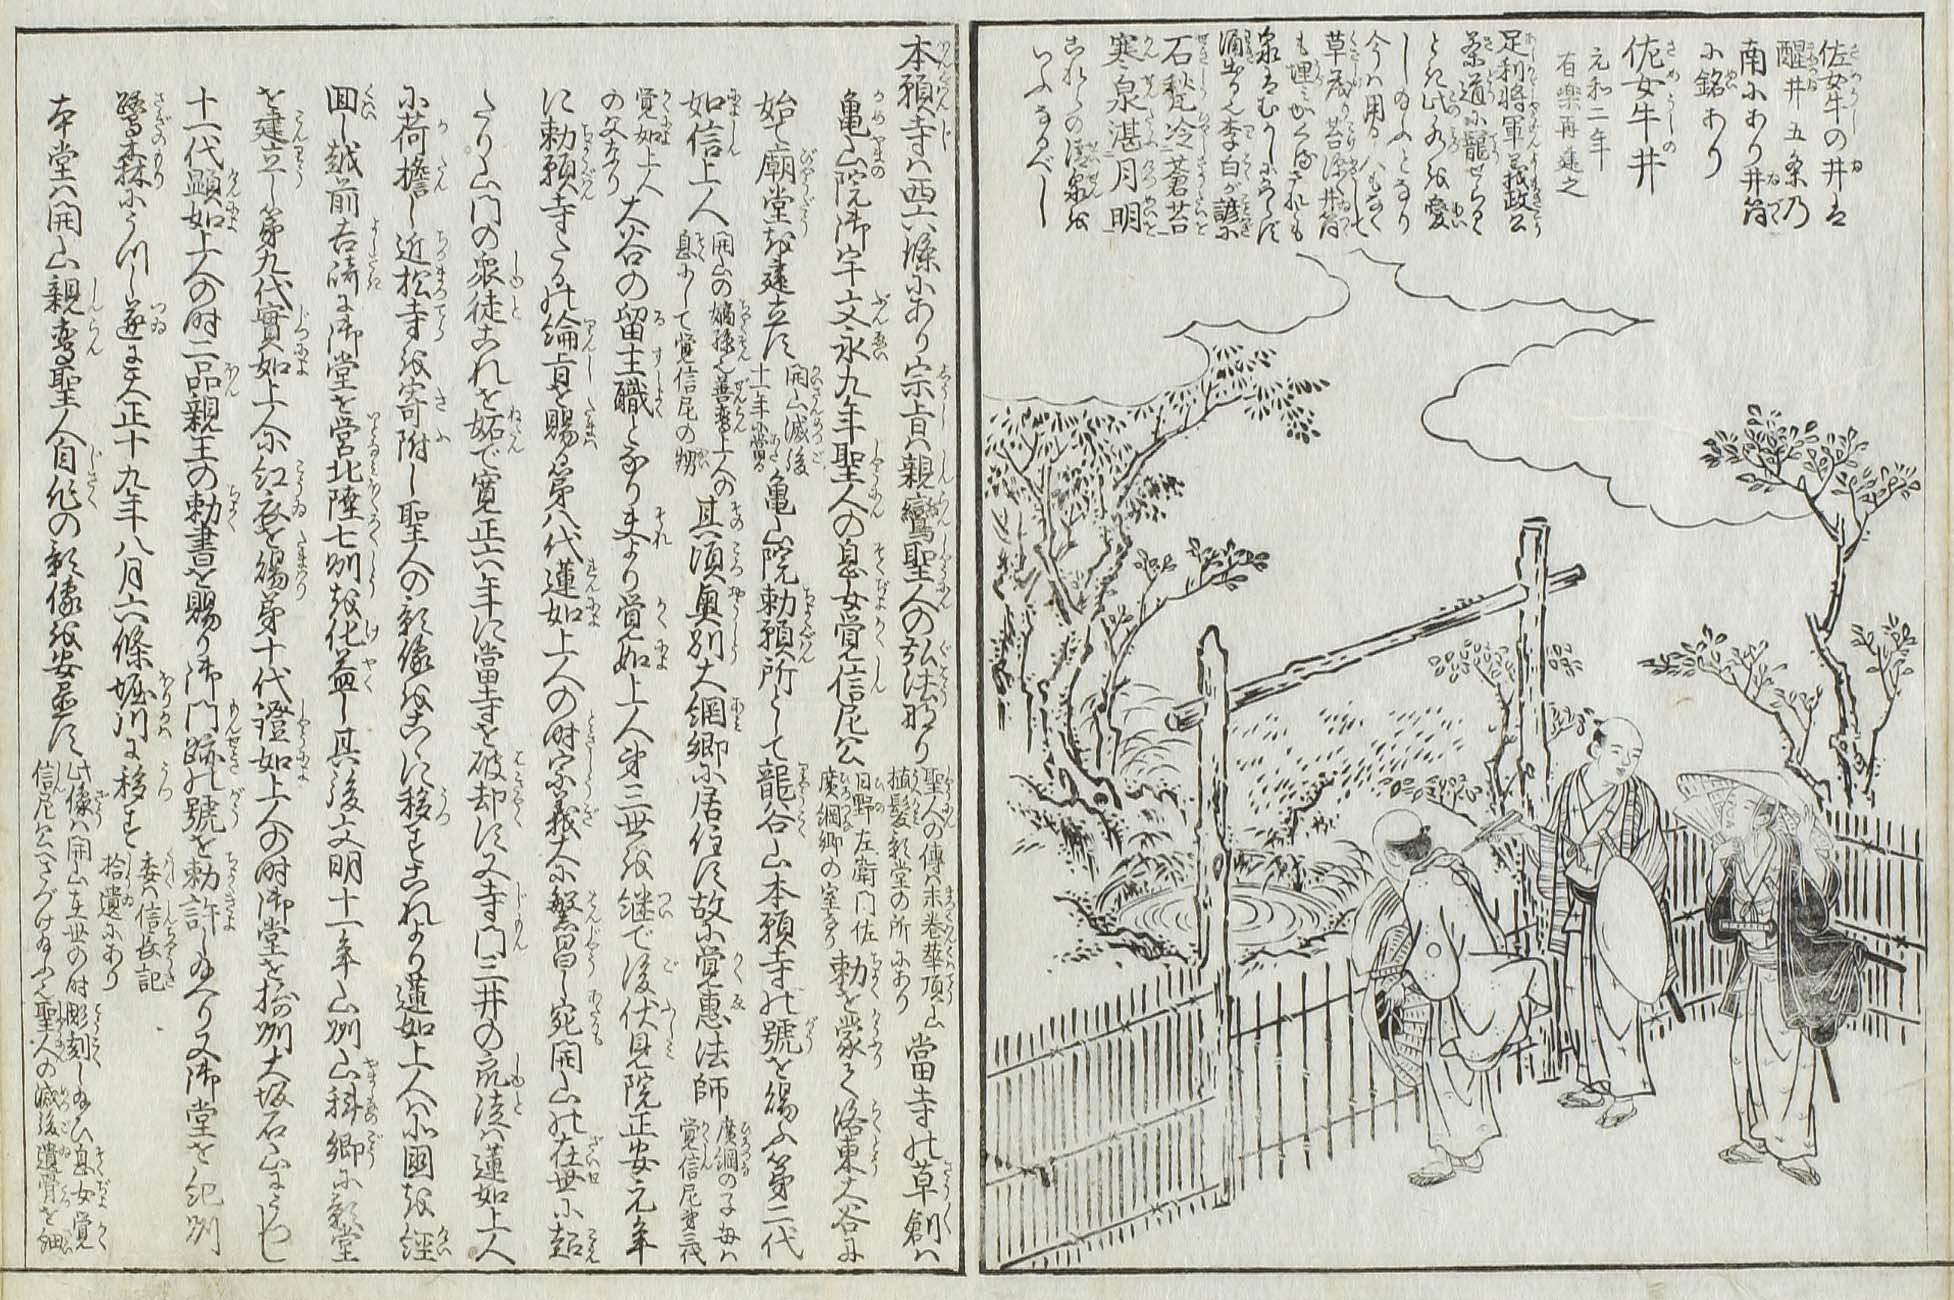 佐女牛の井は
醒井五条乃
南にあり井筒
に銘あり
佐女牛井
元和二年
有楽再建之
足利将軍義政公
茶道に寵せらるゝ
とき此水を愛
し給ふとなり
今は用る人もなく
草茂り苔深く井筒
も埋みかくるされとも
泉はむかしにかはらず
涌出る也李白が諺に
石甃冷蒼苔
寒泉湛月明
これらの清泉を
いふなるべし
本願寺は西六條にあり宗旨は親鸞聖人の弘法なり 聖人の傳は末巻華頂山 植髪影堂の所にあり 當寺の草創は
亀山院御宇文永九年聖人の息女覚信尼公 日野左衛門佐 廣綱卿の室なり 勅を蒙て洛東大谷に
始て廟堂を建立す 開山滅後 十一年に當る 亀山院勅願所として龍谷山本願寺の號を賜ふ第二代
如信上人 開山の嫡孫也善鸞上人の 息にして覚信尼の甥 其頃奥州大網郷に居住す故に覚恵法師 廣綱の子母は 覚信尼第三代
覚如上人 の父なり 大谷の留主職となり夫より覚如上人第三世を継で後伏見院正安元年
に勅願寺たるの綸旨を賜る第八代蓮如上人の時宗義大に繁昌し宛開山の在世に超
たり山門の衆徒これを妬で寛正六年に當寺を破却す又寺門三井の衆徒は蓮如上人
に荷擔し近松寺を寄附し聖人の影像をこゝに移すこれより蓮如上人は小國を經
回し越前吉崎に御堂を営北陸七州を化益し其後文明十一年山州山科郷に影堂
を建立し第九代實如上人に紅衣を賜第十代證如上人の時御堂を摂州大坂石山にうつし
十一代顕如上人の時二品親王の勅書を賜り御門跡の號を勅許し給へり又御堂を紀州
鷺森にうつし遂に天正十九年八月六條堀川に移す 委は信長記 拾遺にあり
本堂は開山親鸞聖人自作の影像を安置す 此像は開山在世の時彫刻し給ひ息女覚 信尼公へさづけ給ふ也聖人の滅後遺骨を細